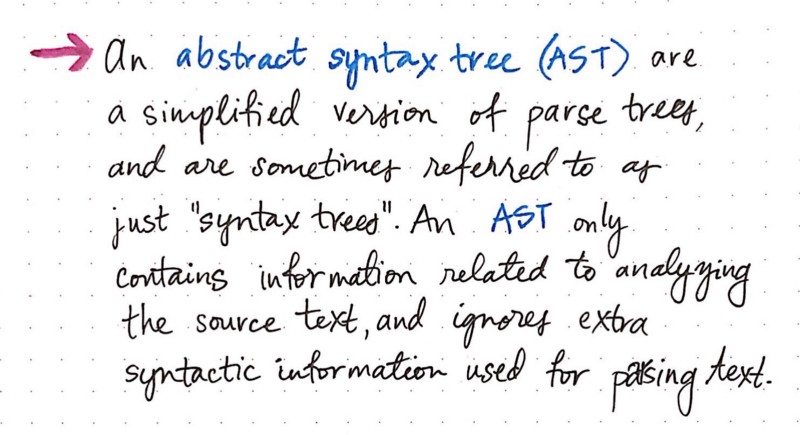 → An abstract syntax tree (AST) are
a simplified version of parse trees,
and are sometimes referred to as
just "syntax trees". An AST only
contains information related to analyzing
the source text, and ignores extra
syntactic information used for parsing text.